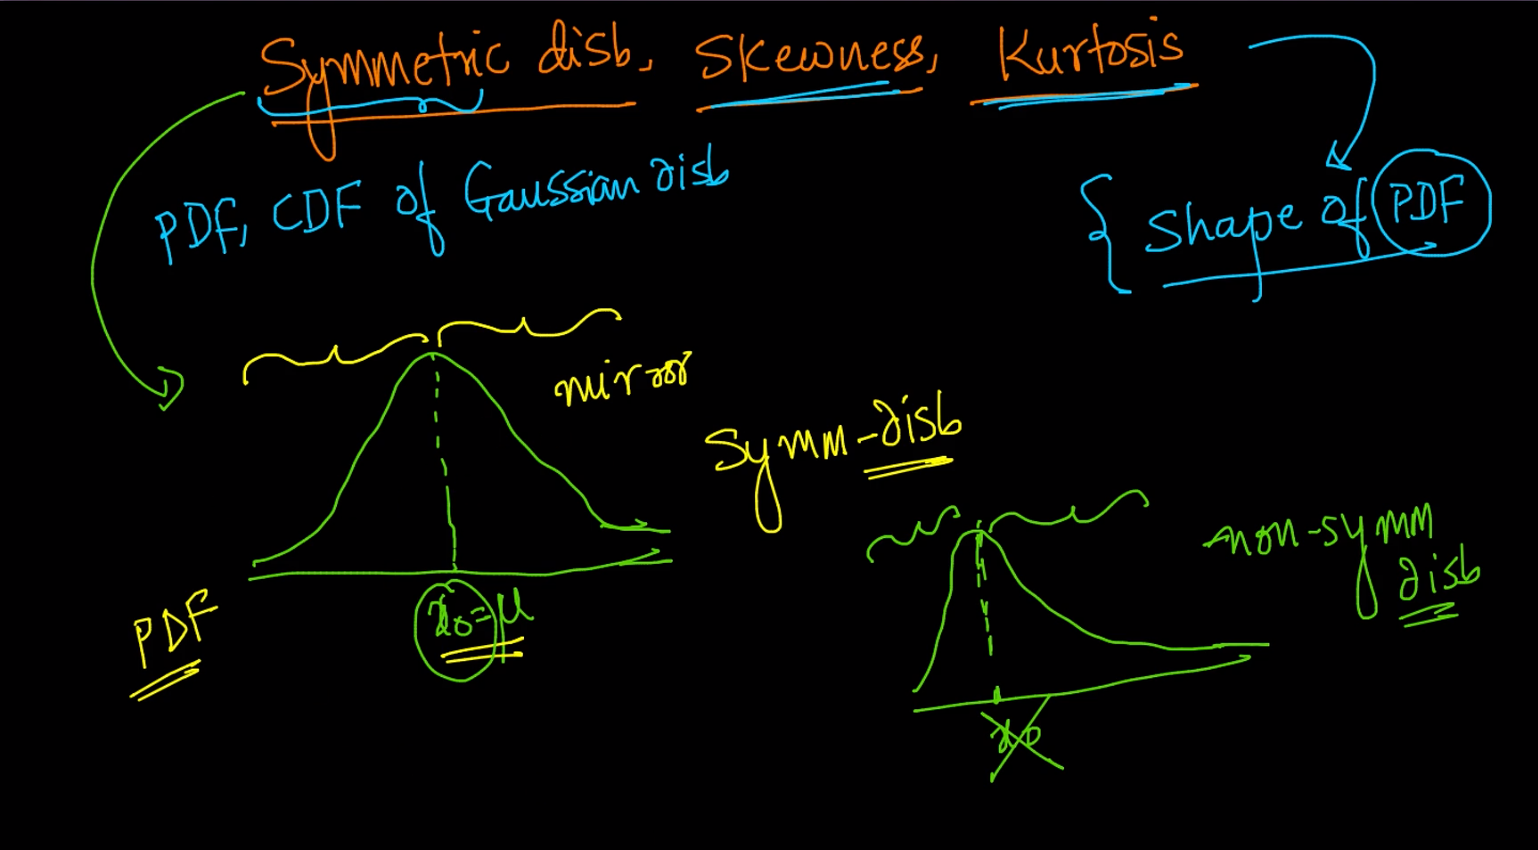 Symmetric disb, Skewness, Kurtosis
PDF, CDF of Gaussian disb
Shape of PDF
mirror
Symm-disb
PDF
x₀=μ
non-symm
disb
x₀